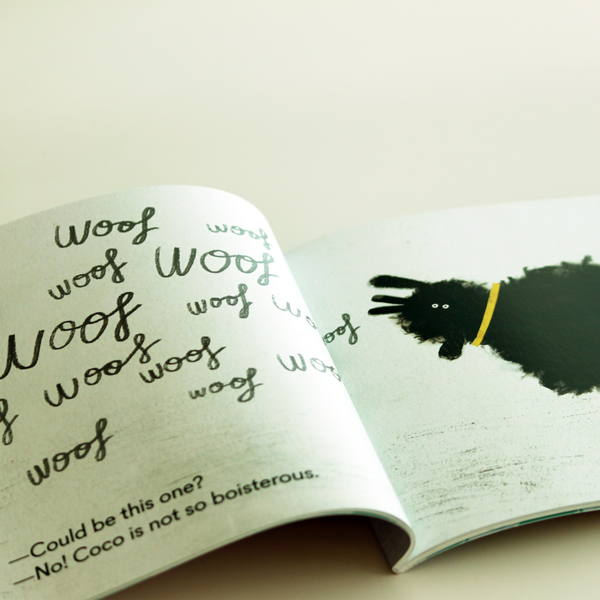 woof woof
woof woof
woof woof wo
woof woof woof
woof woof woo
woof
—Could be this one?
—No! Coco is not so boisterous.